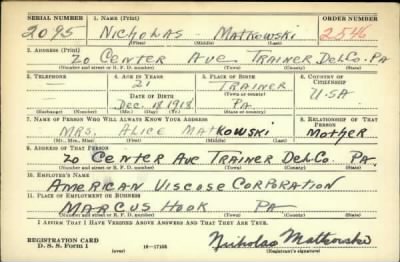 SERIAL NUMBER 1. NAME (Print) ORDER NUMBER
2095 NICHOLAS - MATKOWSKI 2546
(First) (Middle) (Last)
2. ADDRESS (Print)
20 CENTER AVE TRAINER DEL.CO. PA
(Number and street or R. F. D. number) (Town) (County) (State)
3. TELEPHONE 4. AGE IN YEARS 5. PLACE OF BIRTH 6. COUNTRY OF CITIZENSHIP
21 TRAINER
DATE OF BIRTH (Town or county) U.S.A
Dec. 18 1918 PA
(Exchange) (Number) (Mo.) (Day) (Yr.) (State or country)
7. NAME OF PERSON WHO WILL ALWAYS KNOW YOUR ADDRESS 8. RELATIONSHIP OF THAT PERSON
MRS. ALICE MATKOWSKI MOTHER
(Mr., Mrs., Miss) (First) (Middle) (Last)
9. ADDRESS OF THAT PERSON
20 CENTER AVE TRAINER DEL.CO. PA.
(Number and street or R. F. D. number) (Town) (County) (State)
10. EMPLOYER'S NAME
AMERICAN VISCOSE CORPORATION
11. PLACE OF EMPLOYMENT OR BUSINESS
MARCUS HOOK PA
(Number and street or R. F. D. number) (Town) (County) (State)
I AFFIRM THAT I HAVE VERIFIED ABOVE ANSWERS AND THAT THEY ARE TRUE.
REGISTRATION CARD Nicholas Matkowski
D. S. S. Form 1 (over) 16-17105 (Registrant's signature)